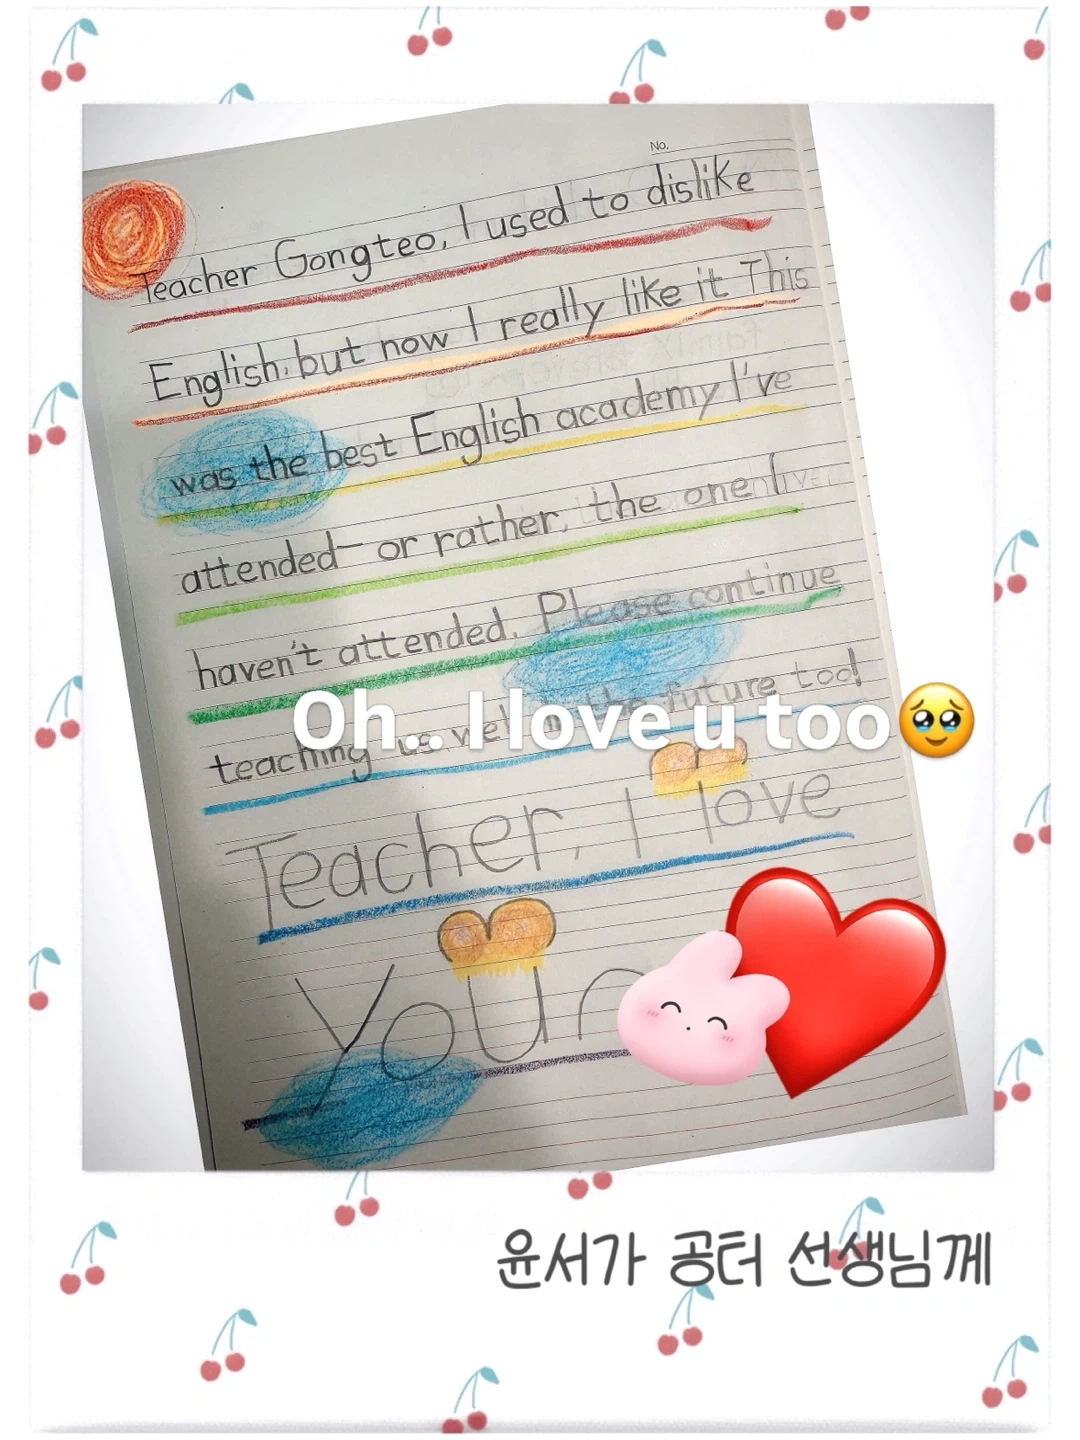 No.
Teacher Gongteo, I used to dislike
English, but now I really like it This
was the best English academy I've
attended- or rather, the one I
haven't attended. Please continue
teaching us well in the future too!
Oh.. I love u too🥹
Teacher, I love
You
윤서가 공터 선생님께